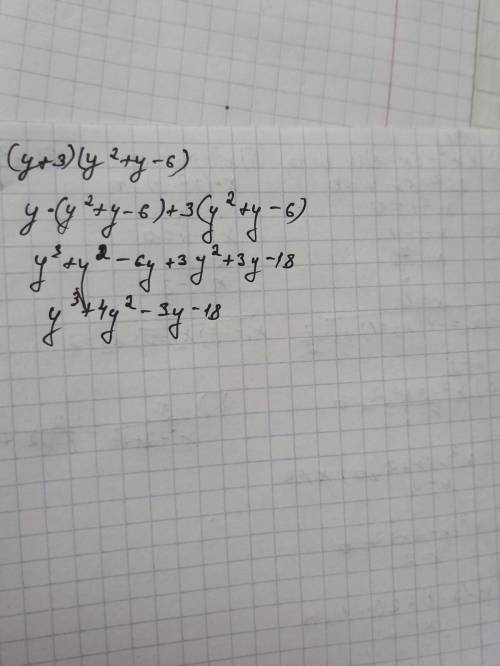 (y+3)(y²+y-6)
y·(y²+y-6)+3(y²+y-6)
y³+y²-6y+3y²+3y-18
y³+4y²-3y-18